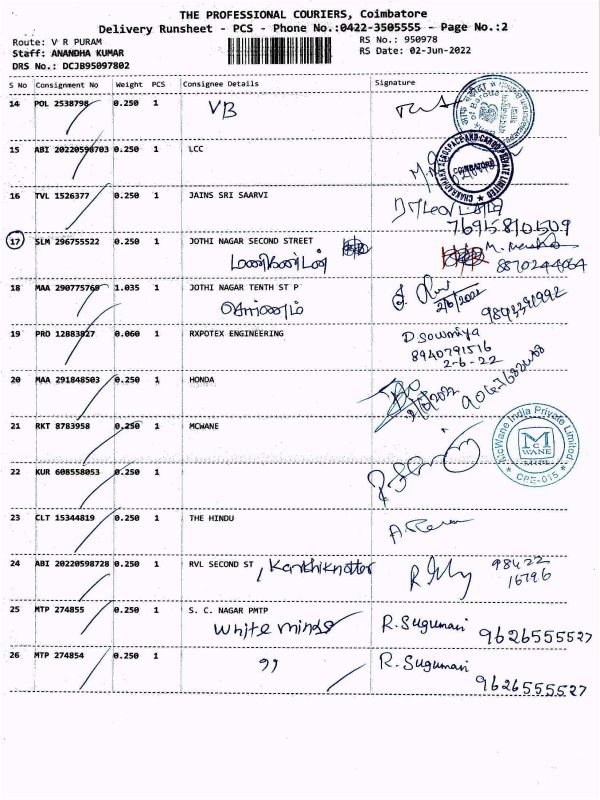 THE PROFESSIONAL COURIERS, Coimbatore
Delivery Runsheet - PCS - Phone No.:0422-3505555 - Page No.:2
Route: V R PURAM RS No.: 950978
Staff: ANANDHA KUMAR RS Date: 02-Jun-2022
DRS No.: DCJB95097802
S No Consignment No Weight PCS Consignee Details Signature
14 POL 2538798 0.250 1 VB
of Baroda
15 ABI 20220598703 0.250 1 LCC
CHAKRADHARA AEROSPACE AND CARGO PRIVATE LIMITED
COIMBATORE
16 TVL 1526377 0.250 1 JAINS SRI SAARVI
7695810509
17 SLM 296755522 0.250 1 JOTHI NAGAR SECOND STREET
மணிகண்டன் 8870244064
18 MAA 290775760 1.035 1 JOTHI NAGAR TENTH ST P
2/6/2022
19 PRO 12883927 0.060 1 RXPOTEX ENGINEERING D. Sowmiya
8940791516
2-6-22
20 MAA 291848503 0.250 1 HONDA
2/6/2022
21 RKT 8783958 0.250 1 MCWANE
McWane India Private Limited
McWANE
CPE-015
22 KUR 608558053 0.250 1
23 CLT 15344819 0.250 1 THE HINDU
24 ABI 20220598728 0.250 1 RVL SECOND ST
98422
16796
25 MTP 274855 0.250 1 S. C. NAGAR PMTP
White minds R. Sugumari 9626555527
26 MTP 274854 0.250 1 " R. Sugumari
9626555527